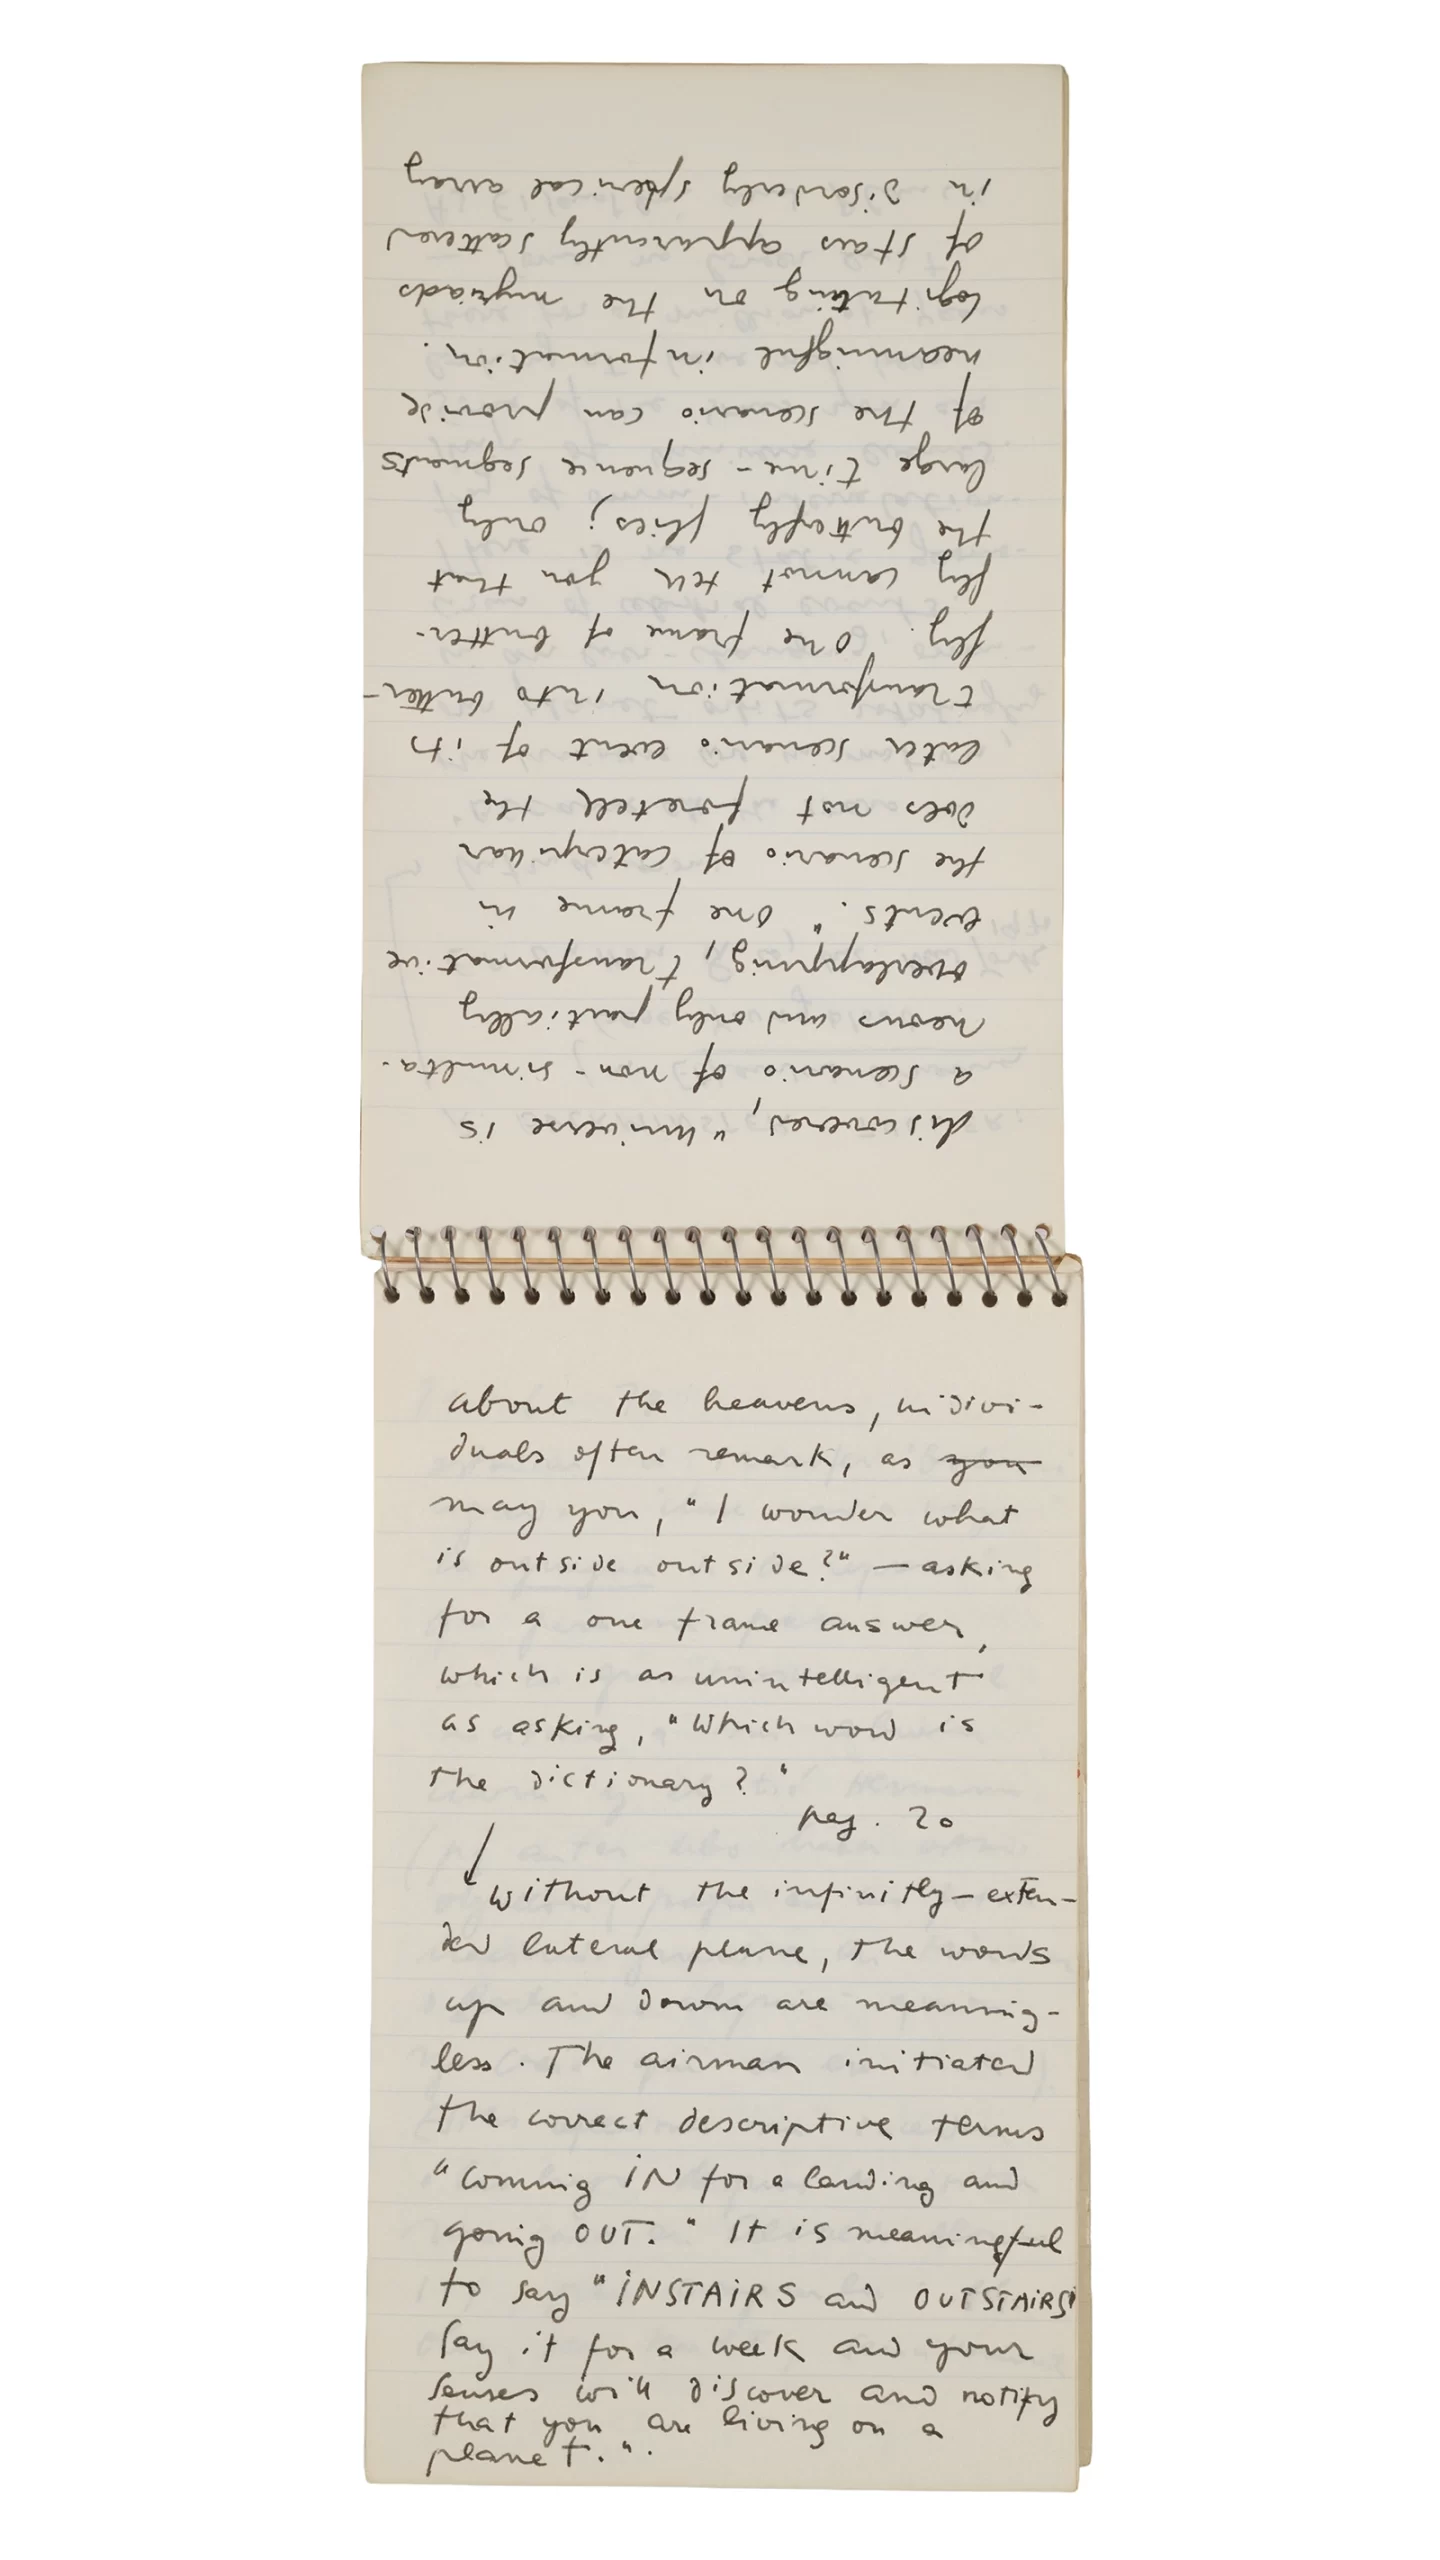 discovered, "universe is
a scenario of non-simulta-
neous and only partially
overlapping, transformative
events." One frame in
the scenario of caterpillar
does not foretell the
later scenario event of its
transformation into butter-
fly. One frame of butter-
fly cannot tell you that
the butterfly flies; only
large time-sequence segments
of the scenario can provide
meaningful information.
Cogitating on the myriads
of stars apparently scattered
in disorderly spherical array
about the heavens, indivi-
duals often remark, as you
may you, "I wonder what
is outside outside?" — asking
for a one frame answer,
which is as unintelligent
as asking, "Which word is
the dictionary?"
pag. 20
Without the infinitly-exten-
ded lateral plane, the words
up and down are meaning-
less. The airman initiated
the correct descriptive terms
"coming IN for a landing and
going OUT." It is meaningful
to say "INSTAIRS and OUTSTAIRS"
Say it for a week and your
senses will discover and notify
that you are living on a
planet.".